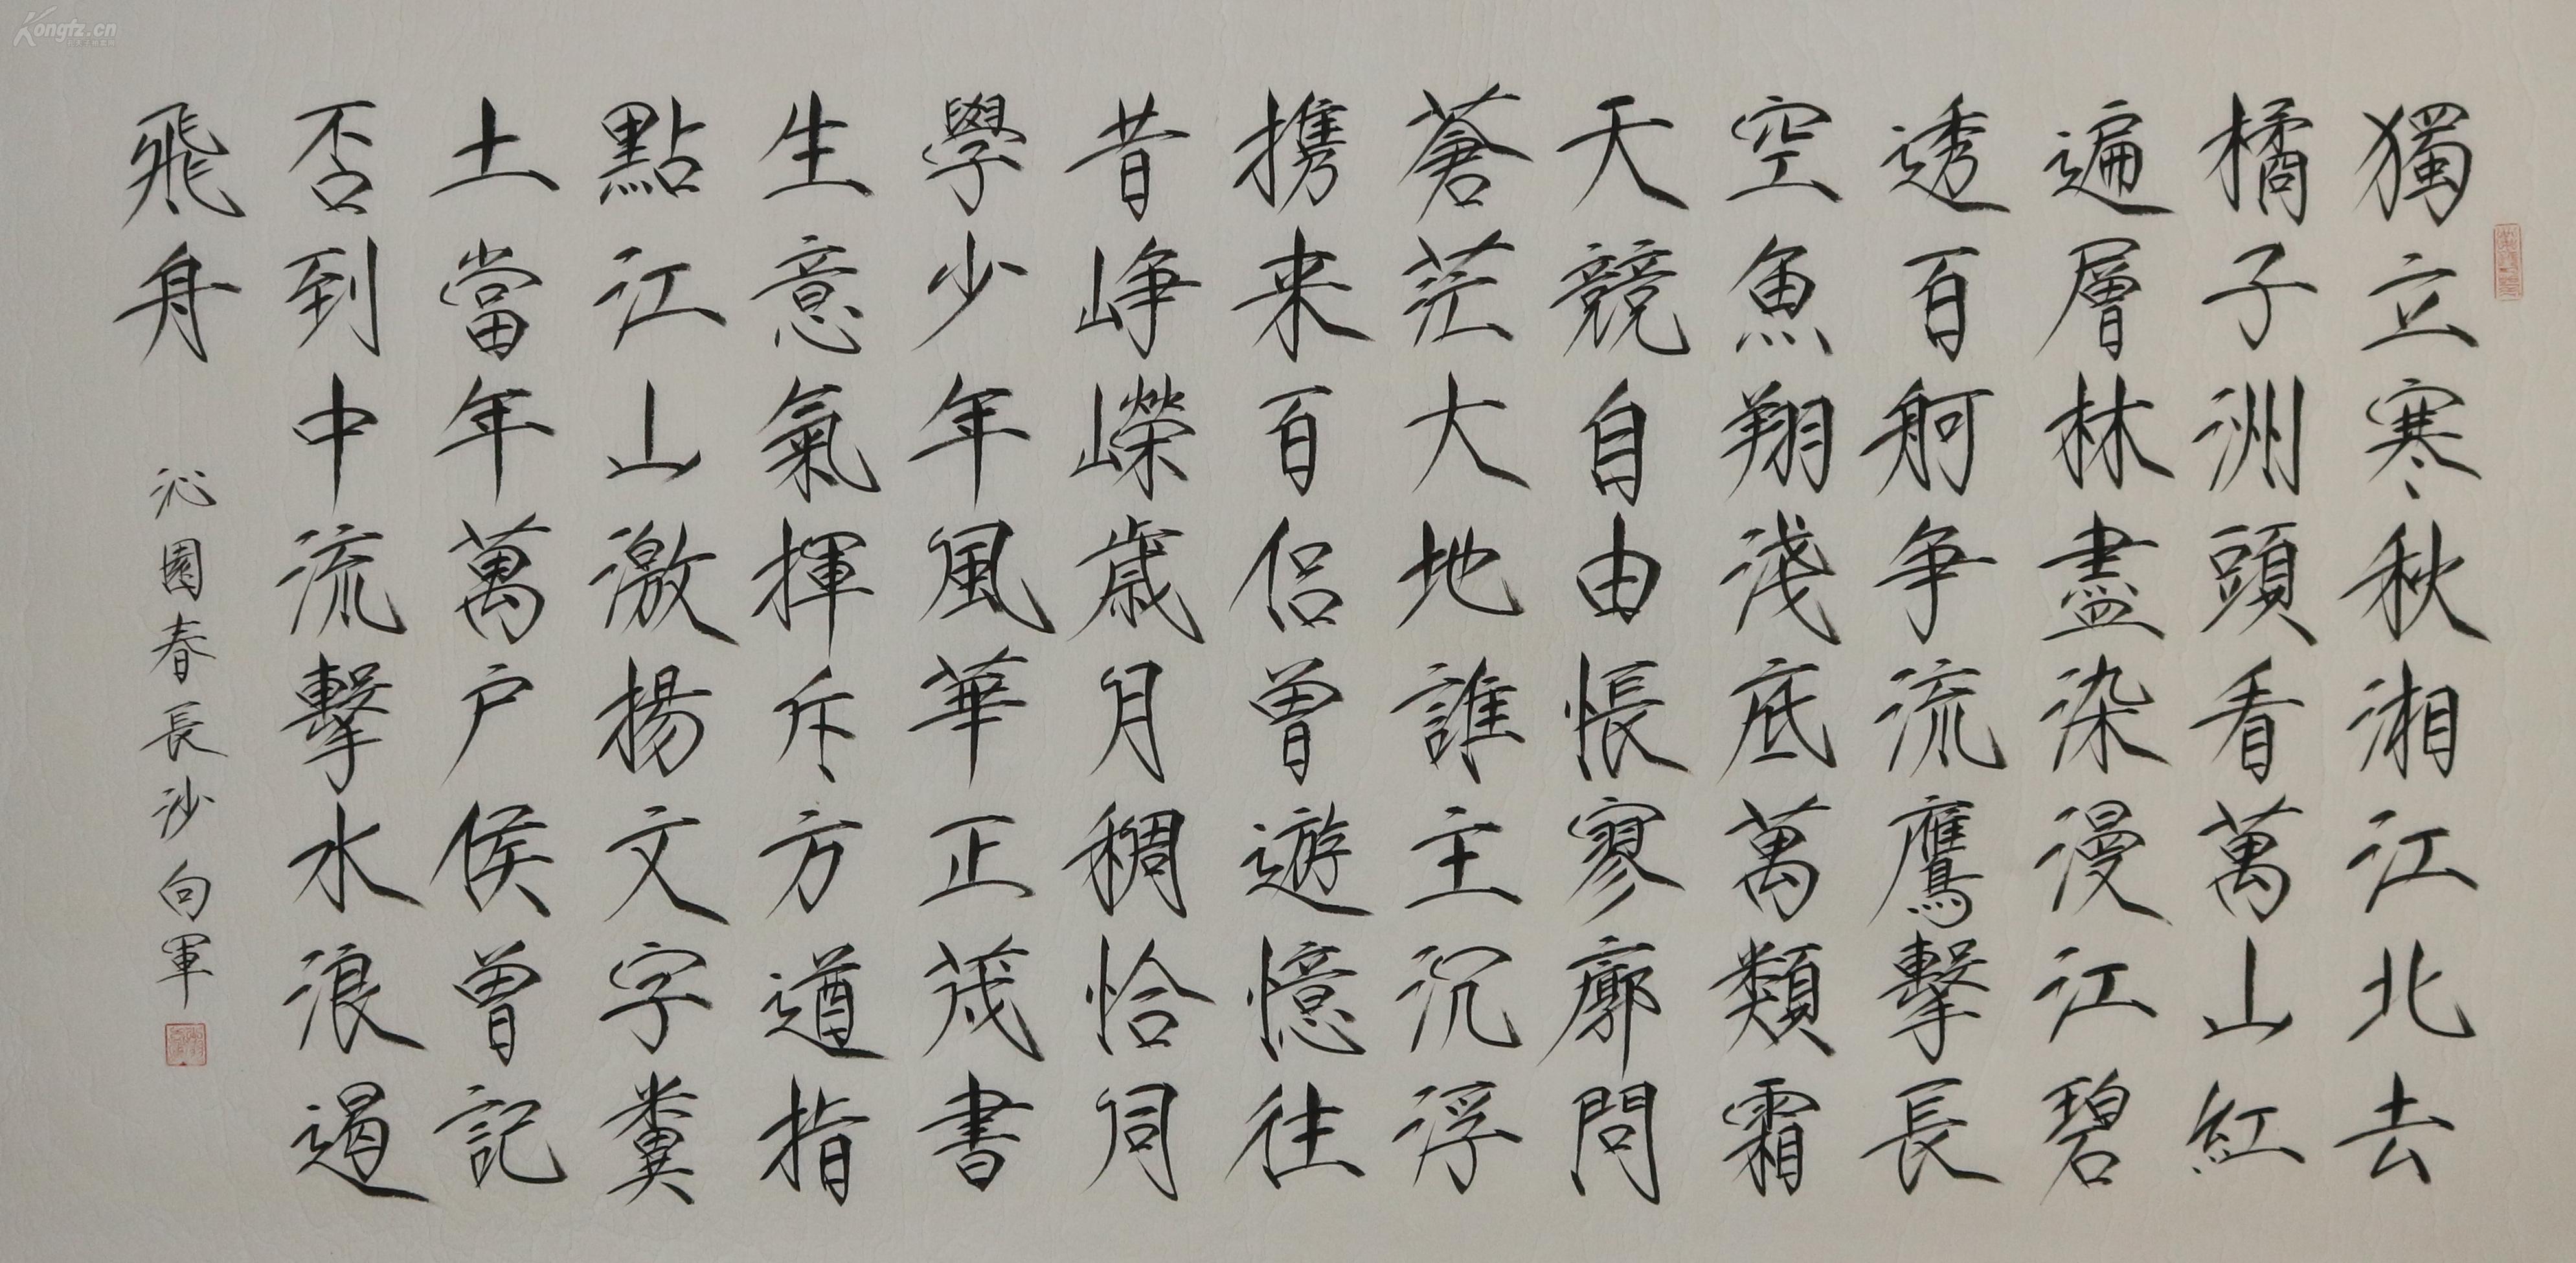 獨立寒秋湘江北去
橘子洲頭看萬山紅
遍層林盡染漫江碧
透百舸争流鷹擊長
空魚翔淺底萬類霜
天競自由悵寥廓問
蒼茫大地誰主沉浮
携来百侣曾遊憶往
昔峥嶸歲月稠恰同
學少年風華正茂書
生意氣揮斥方遒指
點江山激揚文字糞
土當年萬户侯曾記
否到中流擊水浪遏
飛舟
沁園春長沙向軍
Kongfz.cn